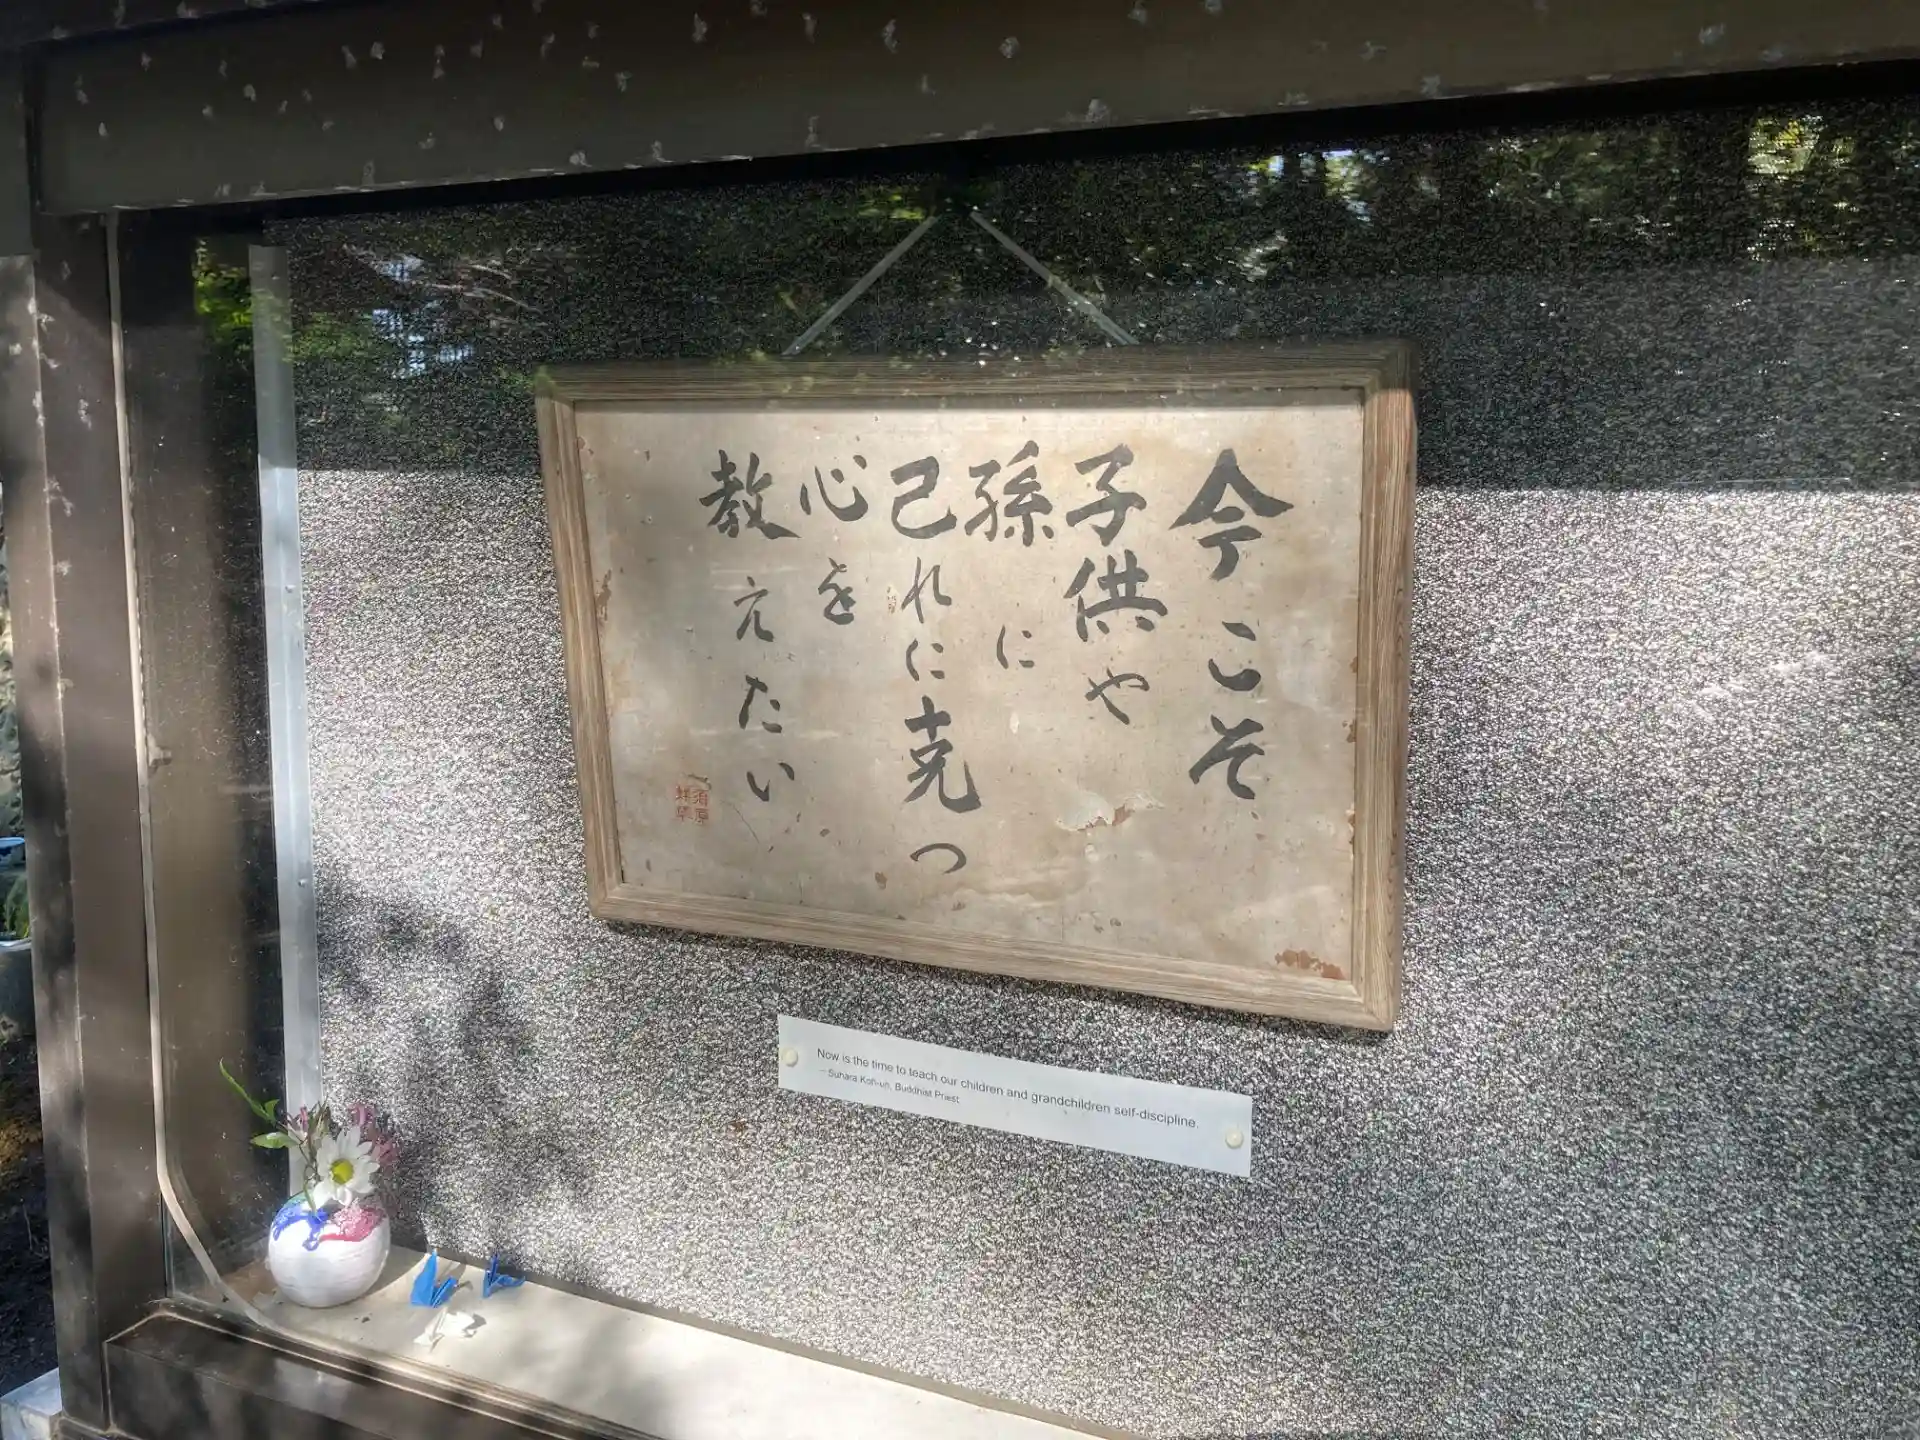 今こそ
子供や
孫に
己れに克つ
心を
教えたい
Now is the time to teach our children and grandchildren self-discipline.
- Suhara Koh-un, Buddhist Priest